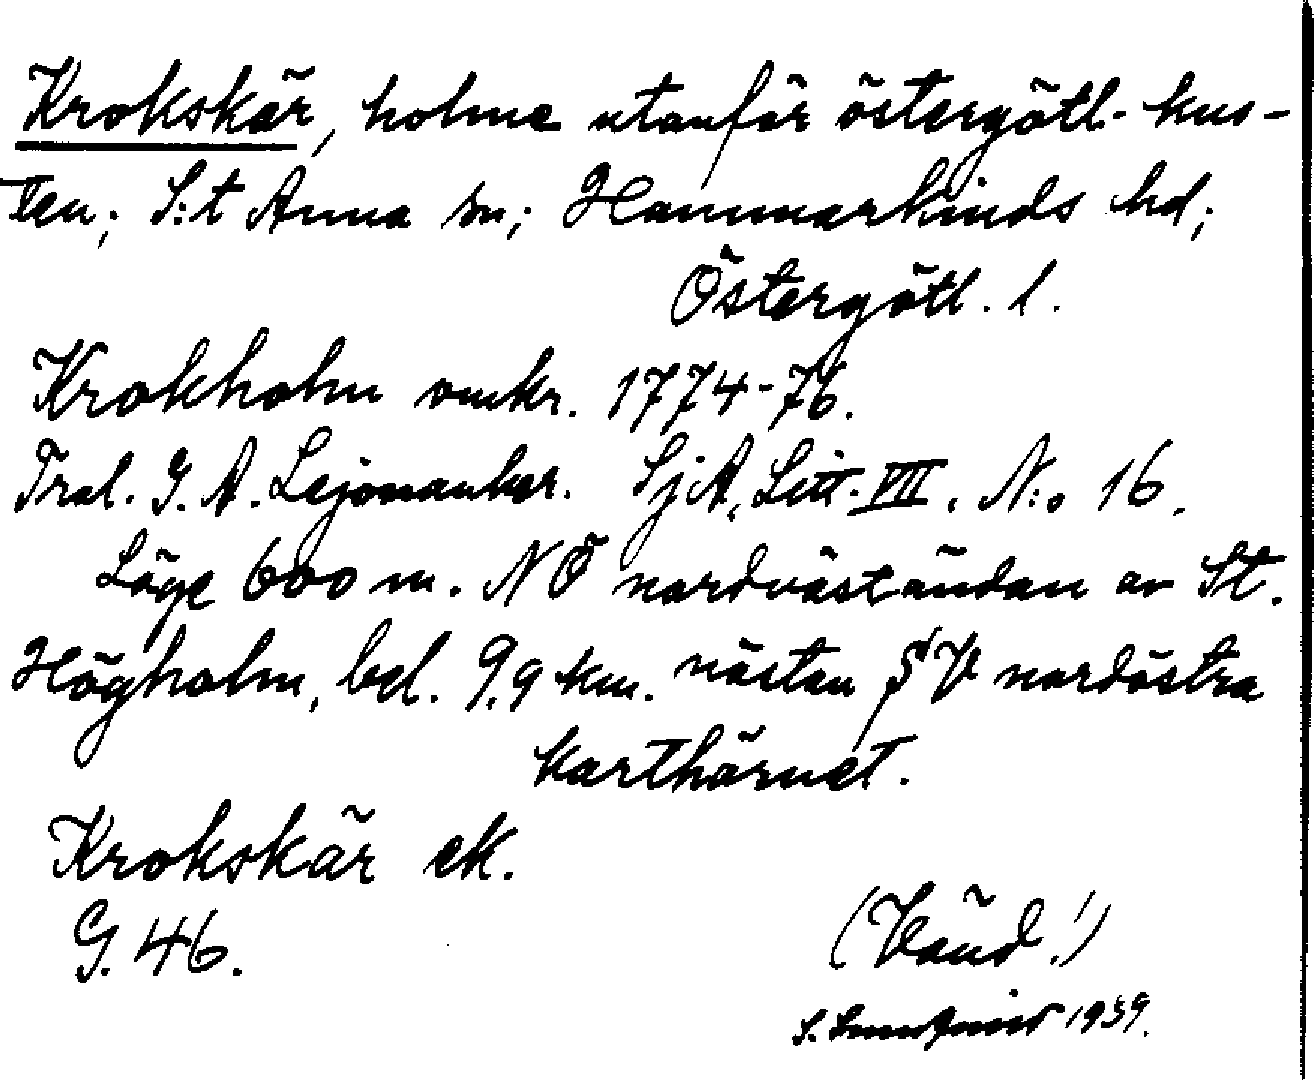 Krokskär, holme utanför östergötl. kus-
ten; S:t Anna sn; Hammarkinds hd;
Östergötl. l.
Krokholm omkr. 1774-76.
Tral. G. A. Lejonanker. SjA, Litt. VII. N:o 16.
Läge 600 m. NÖ nordväständan av St.
Högholm, bel. 9,9 km. nästan SV nordöstra
karthörnet.
Krokskär ek.
G. 46.
(Vänd!)
S. 1939.